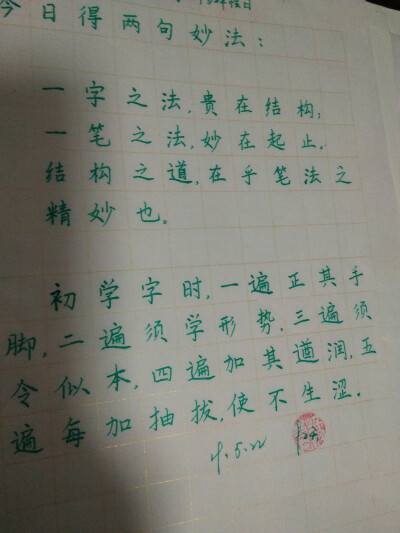 今日得两句妙法：
一字之法，贵在结构；
一笔之法，妙在起止。
结构之道，在乎笔法之
精妙也。
初学字时，一遍正其手
脚，二遍须学形势，三遍须
令似本，四遍加其遒润，五
遍每加抽拔，使不生涩。
9.5.22